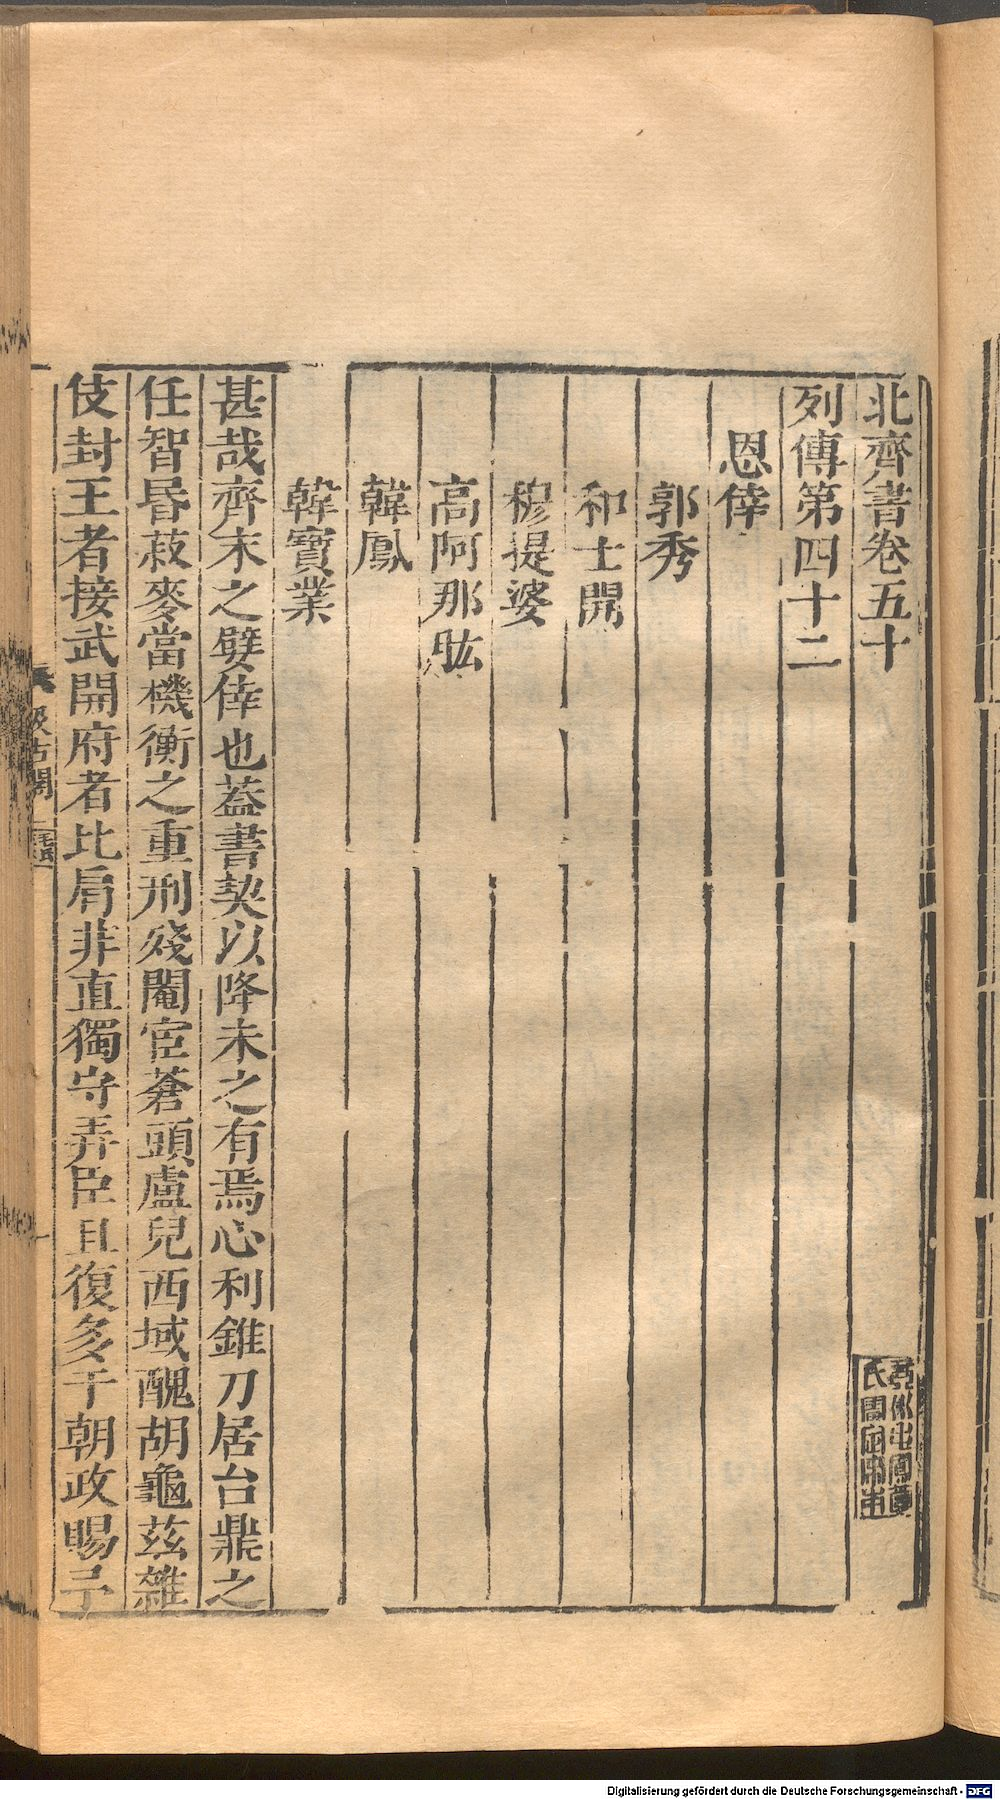 北齊書卷五十
列傳第四十二
恩倖
郭秀
和士開
穆提婆
高阿那肱
韓鳳
韓寶業
甚哉齊末之嬖倖也蓋書契以降未之有焉心利錐刀居台鼎之
任智昏菽麥當機衡之重刑殘閹宦蒼頭盧兒西域醜胡龜茲雜
伎封王者接武開府者比肩非直獨守弄臣且復多干朝政賜予
汲古閣
毛氏
Digitalisierung gefördert durch die Deutsche Forschungsgemeinschaft - DFG